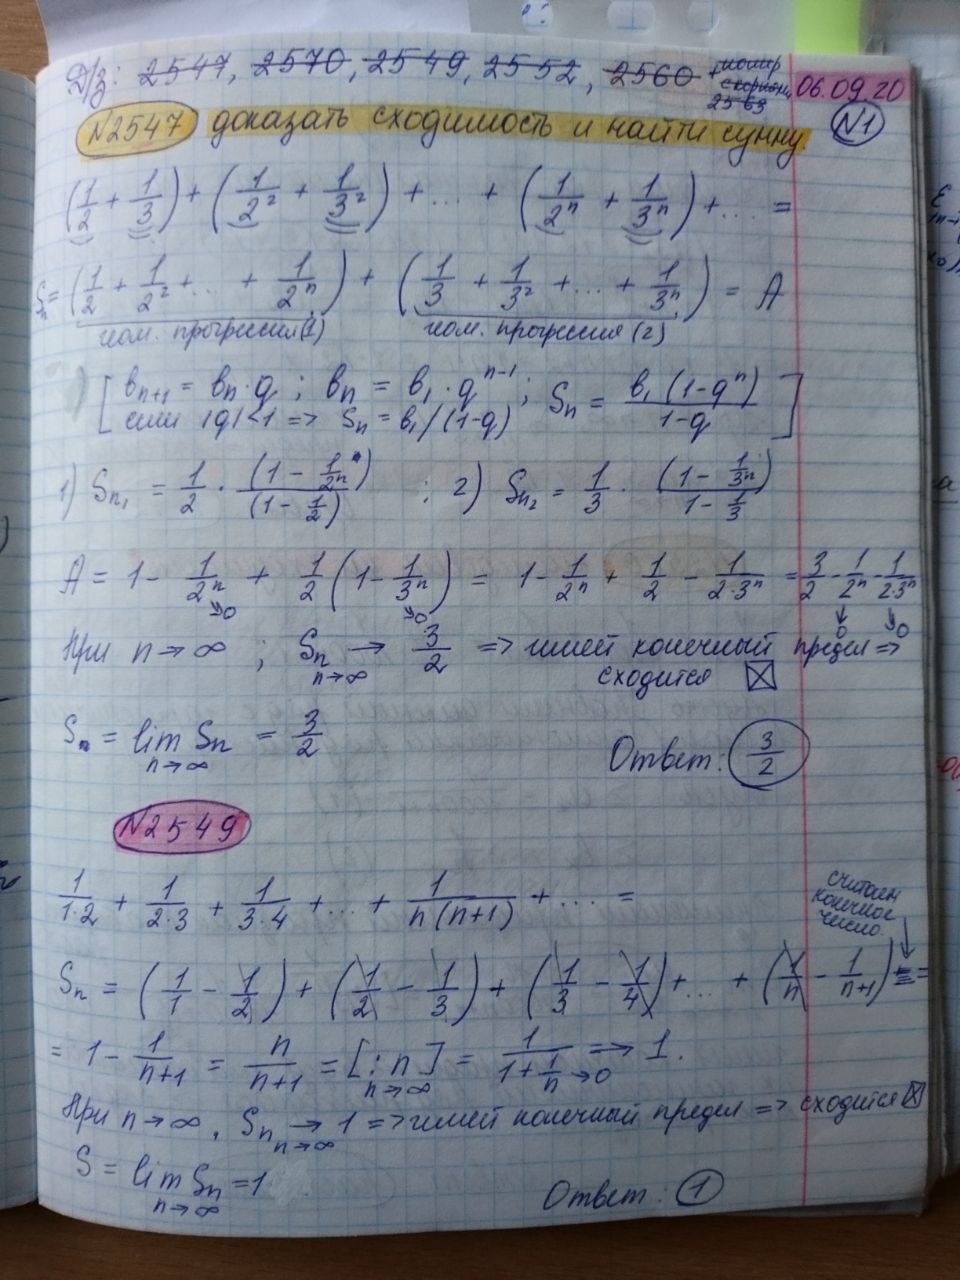 Д/з: 2547, 2570, 2549, 2552, 2560 + 2563 06.09.20
N2547 доказать сходимость и найти сумму. N1
(1/2 + 1/3) + (1/2² + 1/3²) + ... + (1/2ⁿ + 1/3ⁿ) + ... =
Sₙ = (1/2 + 1/2² + ... + 1/2ⁿ) + (1/3 + 1/3² + ... + 1/3ⁿ) = A
геом. прогрессия (1) геом. прогрессия (2)
[bₙ₊₁ = bₙ·q ; bₙ = b₁·qⁿ⁻¹ ; Sₙ = b₁(1-qⁿ)/(1-q)
если |q|<1 => Sₙ = b₁/(1-q)]
1) Sₙ₁ = 1/2 · (1 - 1/2ⁿ)/(1 - 1/2) ; 2) Sₙ₂ = 1/3 · (1 - 1/3ⁿ)/(1 - 1/3)
A = 1 - 1/2ⁿ + 1/2(1 - 1/3ⁿ) = 1 - 1/2ⁿ + 1/2 - 1/(2·3ⁿ) = 3/2 - 1/2ⁿ - 1/(2·3ⁿ)
↘0 ↘0 ↓0 ↘0
При n→∞ ; Sₙ → 3/2 => имеет конечный предел =>
n→∞ сходится ☒
Sₙ = lim Sₙ = 3/2
n→∞ Ответ: 3/2
N2549
1/(1·2) + 1/(2·3) + 1/(3·4) + ... + 1/(n(n+1)) + ... =
считаем
конечное
число.
Sₙ = (1/1 - 1/2) + (1/2 - 1/3) + (1/3 - 1/4) + ... + (1/n - 1/(n+1)) =
= 1 - 1/(n+1) = n/(n+1) = [:n] = 1/(1 + 1/n→0) => 1.
n→∞
При n→∞, Sₙ → 1 => имеет конечный предел => сходится ☒
n→∞
S = lim Sₙ = 1
n→∞ Ответ: 1